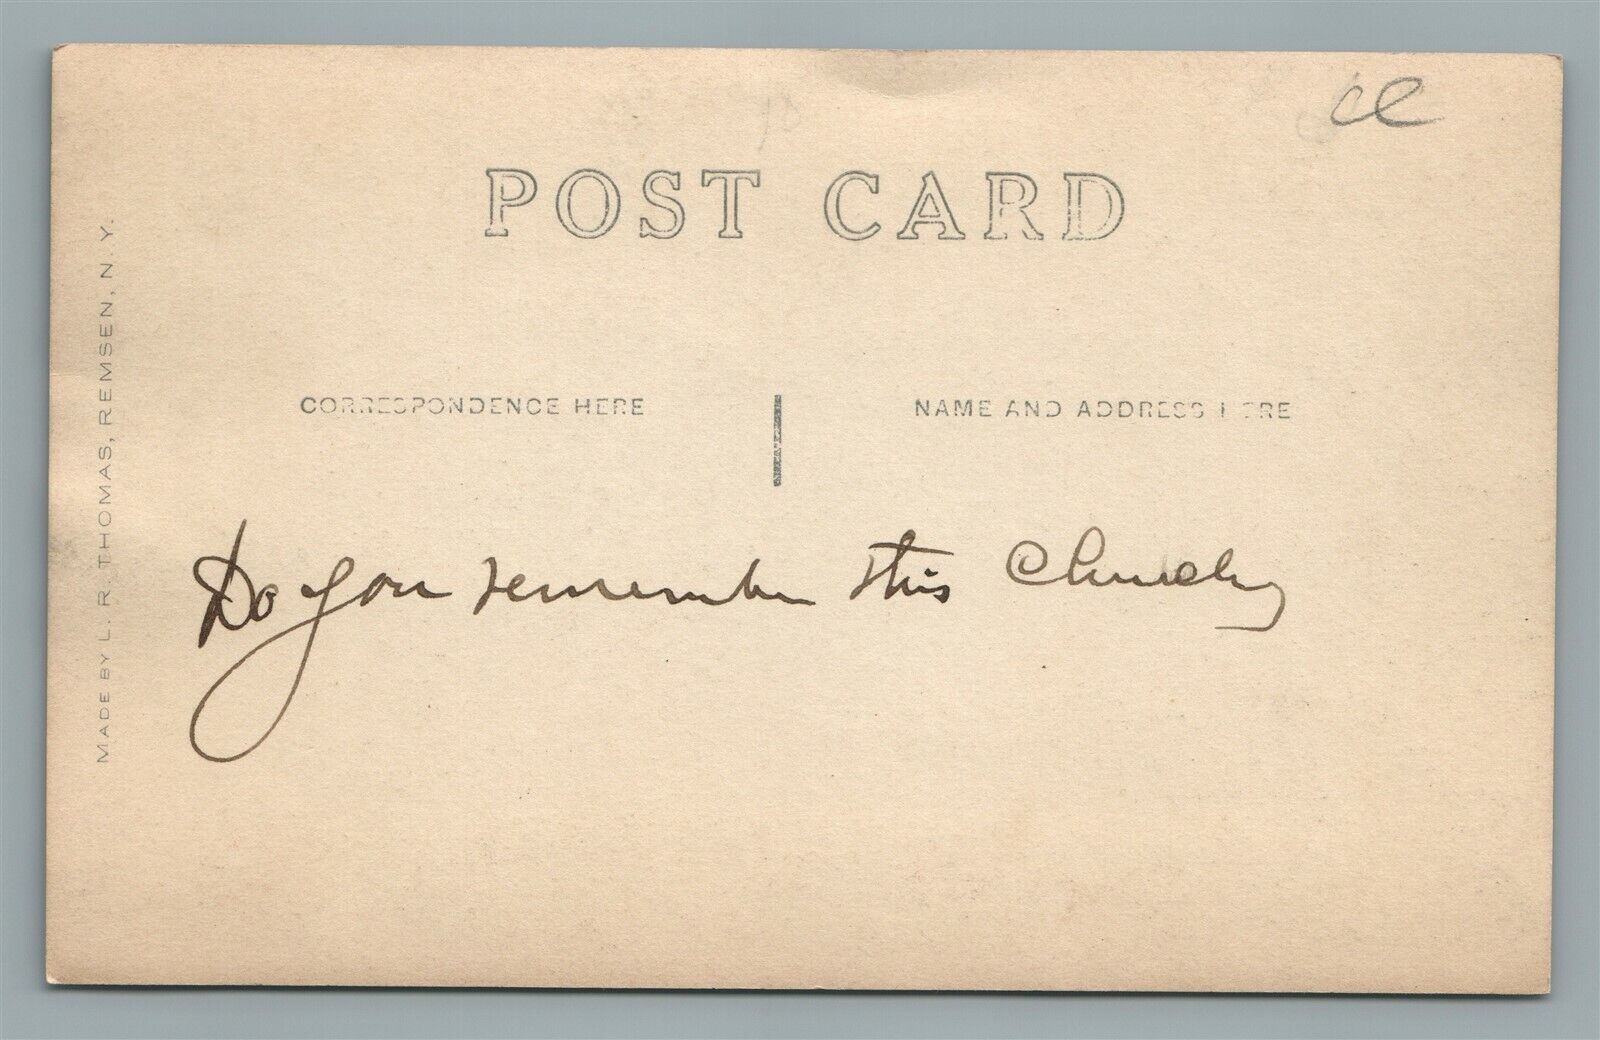 ce
POST CARD
CORRESPONDENCE HERE
NAME AND ADDRESS HERE
MADE BY L. R. THOMAS, REMSEN, N. Y.
Do you remember this Church